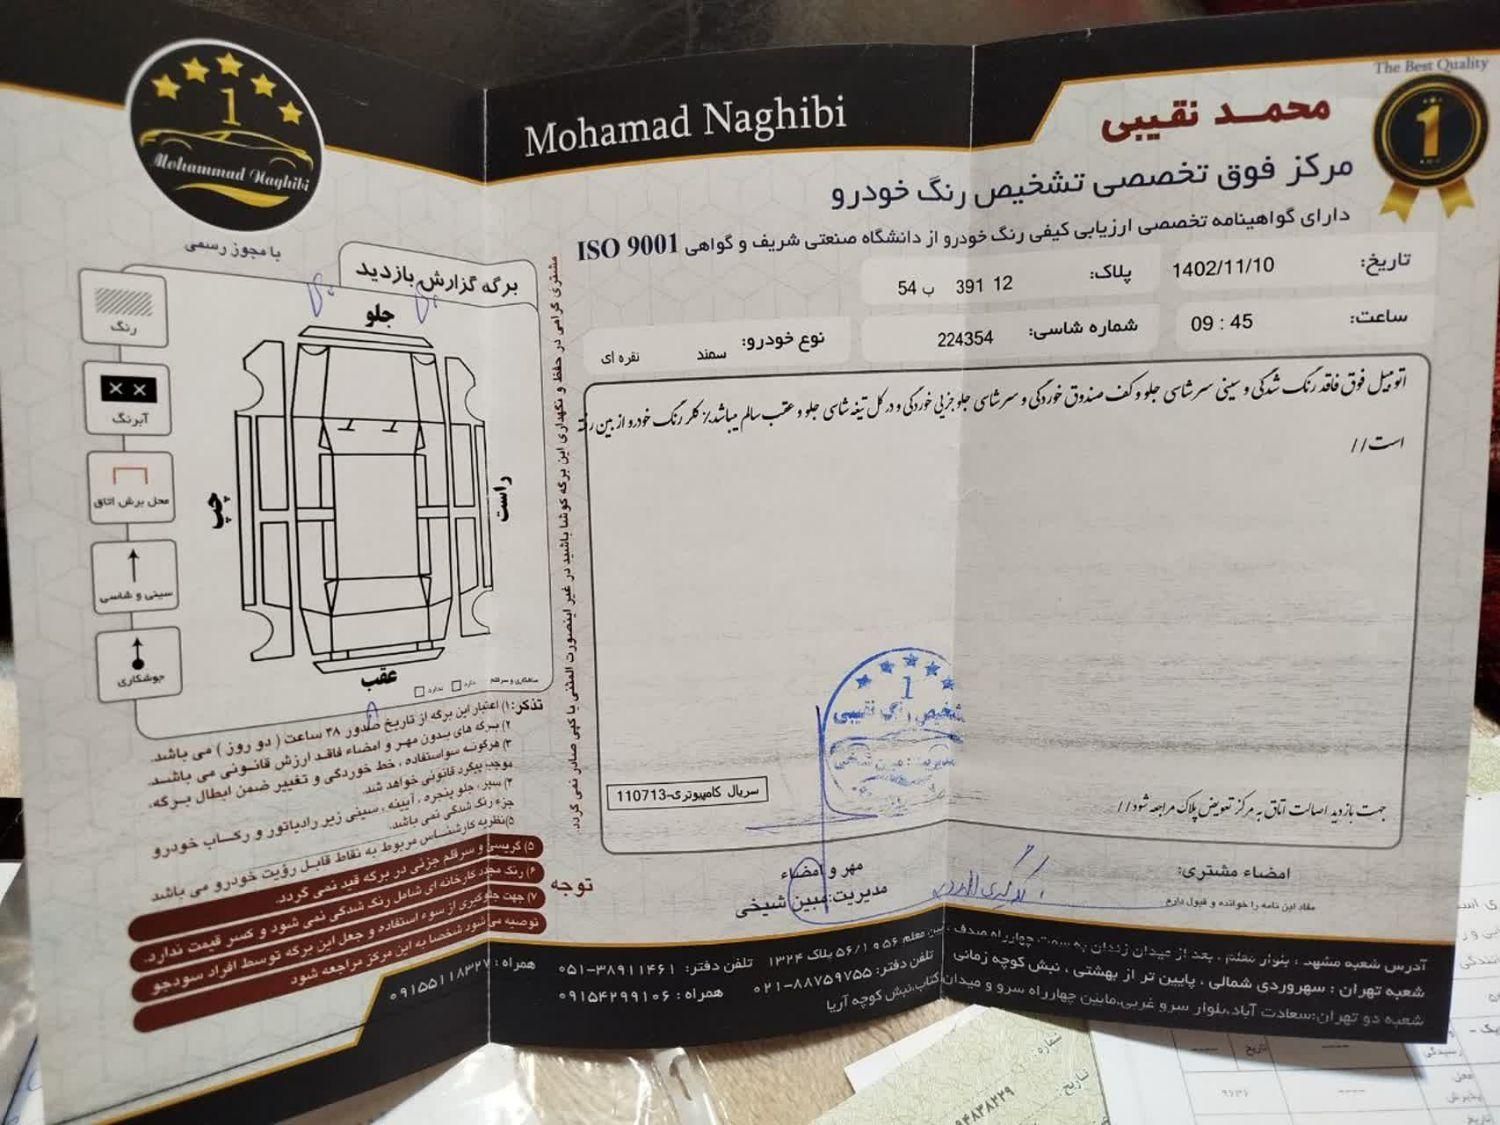 The Best Quality
1
محمد نقیبی
Mohamad Naghibi
1
Mohammad Naghibi
با مجوز رسمی
مرکز فوق تخصصی تشخیص رنگ خودرو
دارای گواهینامه تخصصی ارزیابی کیفی رنگ خودرو از دانشگاه صنعتی شریف و گواهی ISO 9001
تاریخ: 1402/11/10
پلاک: 12 391 ب 54
ساعت: 09 : 45
شماره شاسی: 224354
نوع خودرو: سمند نقره ای
اتومبیل فوق فاقد رنگ شدگی و سینی سرشاسی جلو و کف صندوق خوردگی و سرشاسی جلو جزیی خوردگی و در کل تیغه شاسی جلو و عقب سالم میباشد٪ کلر رنگ خودرو از بین رفته
است//
سریال کامپیوتری-110713
جهت بازدید اصالت اتاق به مرکز تعویض پلاک مراجعه شود//
1
تشخیص رنگ نقیبی
مدیریت: مبین شیخی
مهر و امضاء
مدیریت:مبین شیخی
امضاء مشتری:
مفاد این نامه را خوانده و قبول دارم.
برگه گزارش بازدید
جلو
چپ
راست
عقب
صافکاری و سرقلم دارد ندارد
رنگ
آبرنگ
محل برش اتاق
سینی و شاسی
جوشکاری
مشتری گرامی در حفظ و نگهداری این برگه کوشا باشید در غیر اینصورت المثنی یا کپی صادر نمی گردد.
تذکر: ۱) اعتبار این برگه از تاریخ صدور ۴۸ ساعت ( دو روز ) می باشد.
۲) برگه های بدون مهر و امضاء فاقد ارزش قانونی می باشد.
۳) هرگونه سواستفاده ، خط خوردگی و تغییر ضمن ابطال برگه،
موجب پیگرد قانونی خواهد شد.
۴) سپر، جلو پنجره ، آیینه ، سینی زیر رادیاتور و رکاب خودرو
جزء رنگ شدگی نمی باشد.
۵) نظریه کارشناس مربوط به نقاط قابل رؤیت خودرو می باشد
توجه
۵) گریسی و سرقلم جزئی در برگه قید نمی گردد.
۶) رنگ مجدد کارخانه ای شامل رنگ شدگی نمی شود و کسر قیمت ندارد.
۷) جهت جلوگیری از سوء استفاده و جعل این برگه توسط افراد سودجو
توصیه می شود شخصا به این مرکز مراجعه شود
آدرس شعبه مشهد ، بلوار معلم ، بعد از میدان زندان به سمت چهارراه صدف ، بین معلم ۵۶ و ۵۶/۱ پلاک ۱۳۲۴ تلفن دفتر: ۳۸۹۱۱۴۶۱-۰۵۱ همراه : ۰۹۱۵۵۱۱۸۳۲۷
شعبه تهران : سهروردی شمالی ، پایین تر از بهشتی ، نبش کوچه زمانی تلفن دفتر: ۸۸۷۵۹۷۵۵-۰۲۱ همراه : ۰۹۱۵۴۲۹۹۱۰۶
شعبه دو تهران:سعادت آباد،بلوار سرو غربی،مابین چهارراه سرو و میدان کتاب،نبش کوچه آریا
شماره:
تاریخ:
تاریخ
محل
پذیرش
۹۶۳۶
تاریخ